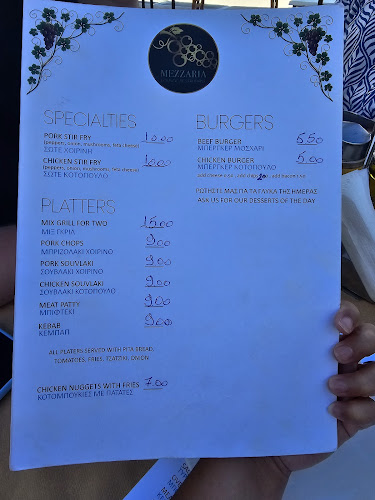 MEZZARIA
SPECIALTIES
PORK STIR FRY 10.00
(peppers, onion, mushrooms, feta cheese)
ΣΩΤΕ ΧΟΙΡΙΝΗ
CHICKEN STIR FRY 10.00
(peppers, onion, mushrooms, feta cheese)
ΣΩΤΕ ΚΟΤΟΠΟΥΛΟ
PLATTERS
MIX GRILL FOR TWO 15.00
ΜΙΞ ΓΚΡΙΛ
PORK CHOPS 9.00
ΜΠΡΙΖΟΛΑΚΙ ΧΟΙΡΙΝΟ
PORK SOUVLAKI 9.00
ΣΟΥΒΛΑΚΙ ΧΟΙΡΙΝΟ
CHICKEN SOUVLAKI 9.00
ΣΟΥΒΛΑΚΙ ΚΟΤΟΠΟΥΛΟ
MEAT PATTY 9.00
ΜΠΙΦΤΕΚΙ
KEBAB 9.00
ΚΕΜΠΑΠ
ALL PLATERS SERVED WITH PITA BREAD,
TOMATOES, FRIES, TZATZIKI, ONION
CHICKEN NUGGETS WITH FRIES 7.00
ΚΟΤΟΜΠΟΥΚΙΕΣ ΜΕ ΠΑΤΑΤΕΣ
BURGERS
BEEF BURGER 5.50
ΜΠΕΡΓΚΕΡ ΜΟΣΧΑΡΙ
CHICKEN BURGER 5.00
ΜΠΕΡΓΚΕΡ ΚΟΤΟΠΟΥΛΟ
ΡΩΤΗΣΤΕ ΜΑΣ ΓΙΑ ΤΑ ΓΛΥΚΑ ΤΗΣ ΗΜΕΡΑΣ
ASK US FOR OUR DESSERTS OF THE DAY